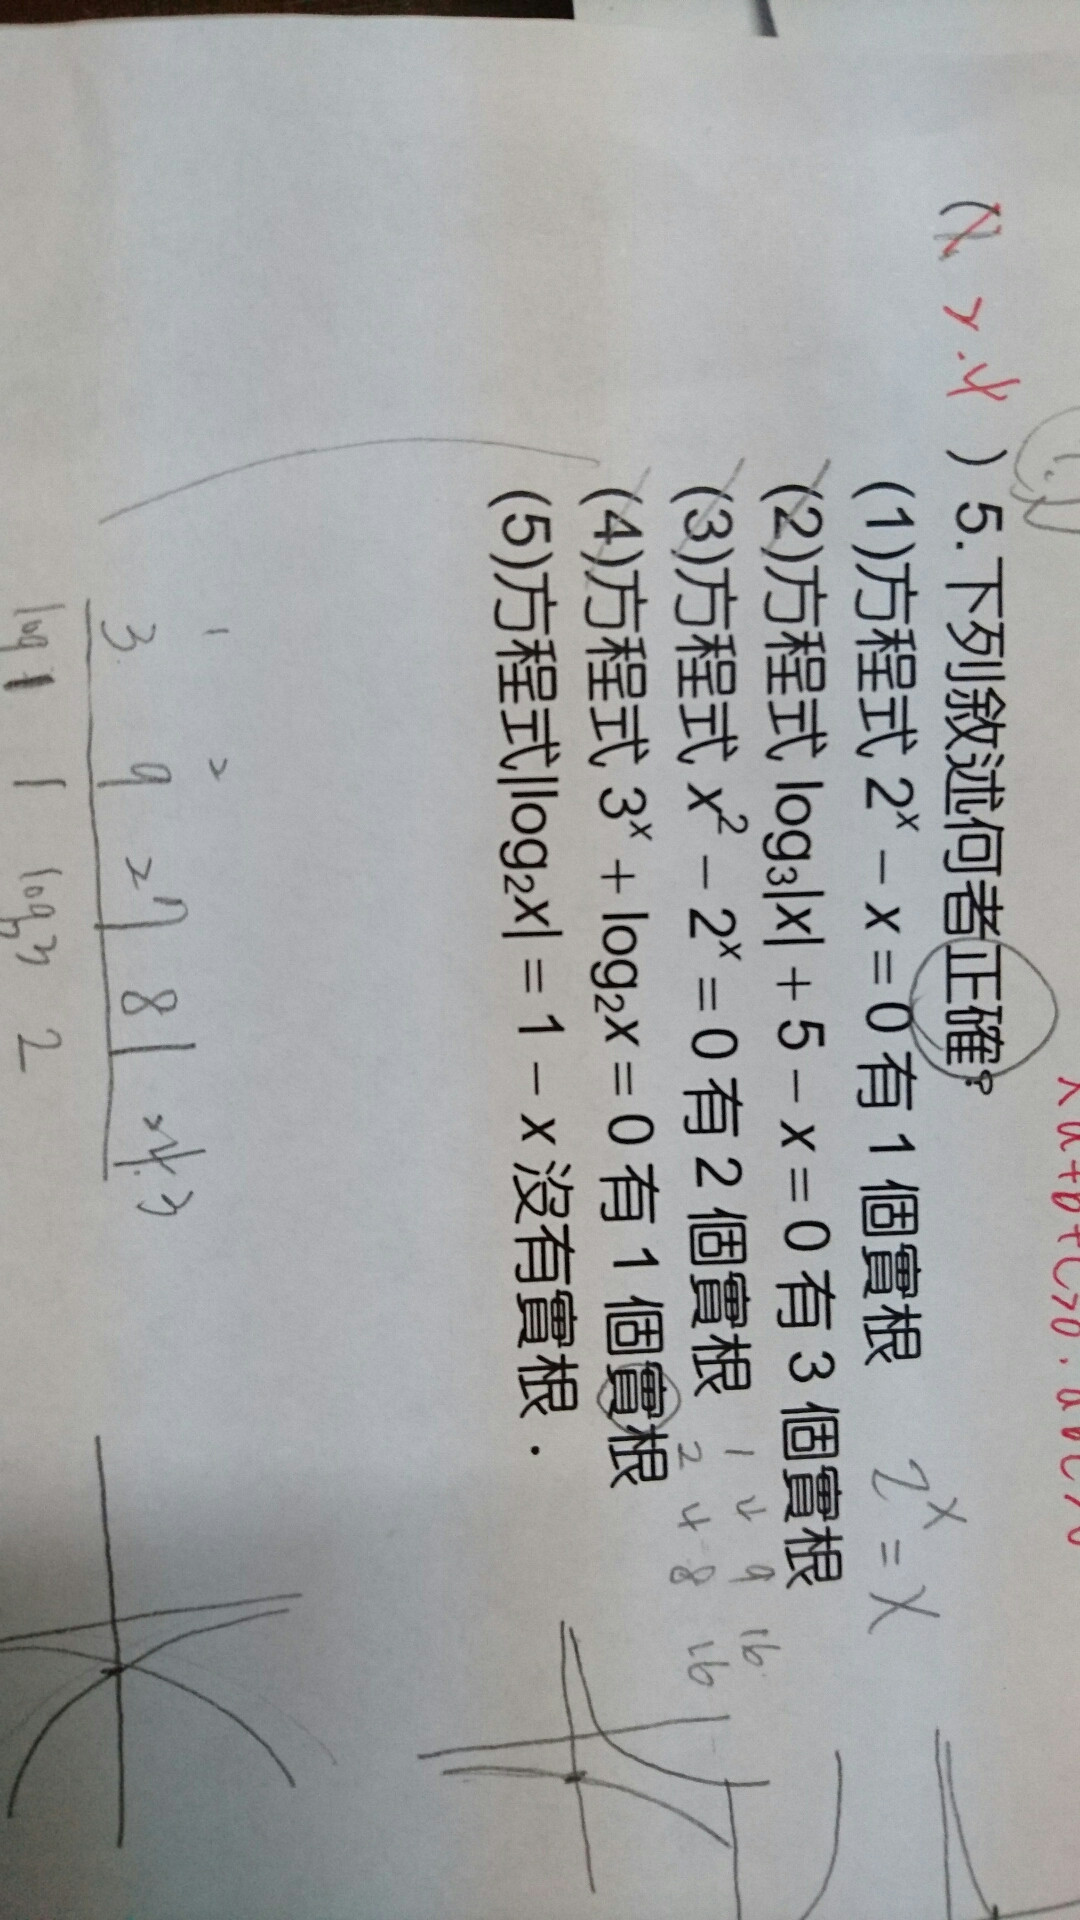 ( 2.4 ) 5.下列敘述何者正確?
(1)方程式 2ˣ − x = 0 有 1 個實根 2ˣ = x
(2)方程式 log₃|x| + 5 − x = 0 有 3 個實根
(3)方程式 x² − 2ˣ = 0 有 2 個實根 1 4 9 16
2 4 8 16
(4)方程式 3ˣ + log₂x = 0 有 1 個實根
(5)方程式|log₂x| = 1 − x 沒有實根．
1 2
3 9 27 81 243
log 1 1 log 3 2